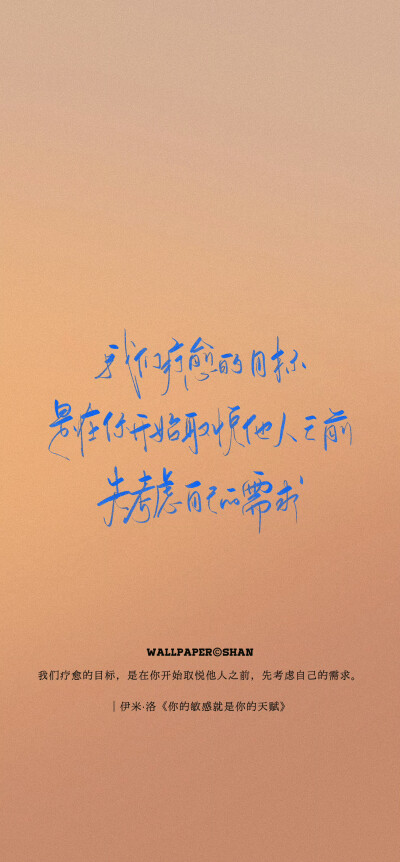 我们疗愈的目标
是在你开始取悦他人之前
先考虑自己的需求
WALLPAPER©SHAN
我们疗愈的目标，是在你开始取悦他人之前，先考虑自己的需求。
｜伊米·洛《你的敏感就是你的天赋》